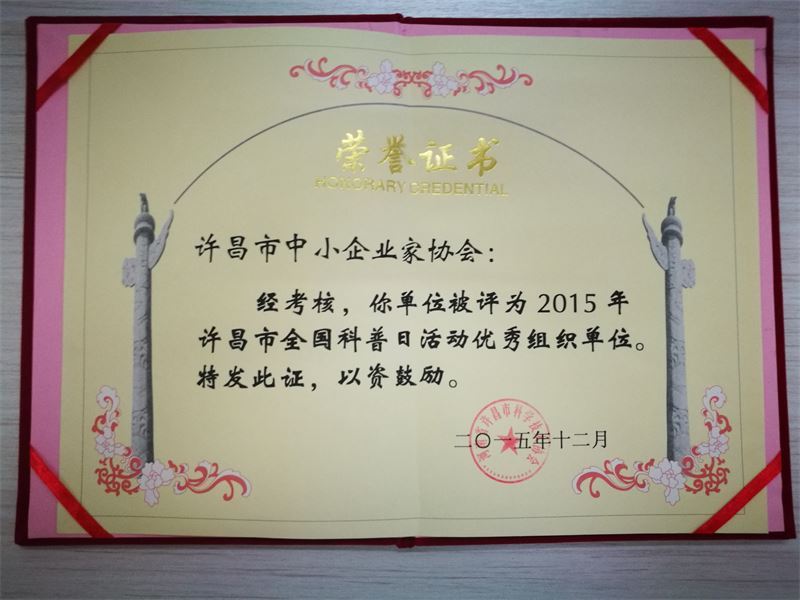 荣誉证书
HONORARY CREDENTIAL
许昌市中小企业家协会：
经考核，你单位被评为 2015 年
许昌市全国科普日活动优秀组织单位。
特发此证，以资鼓励。
二〇一五年十二月
河南省许昌市科学技术协会